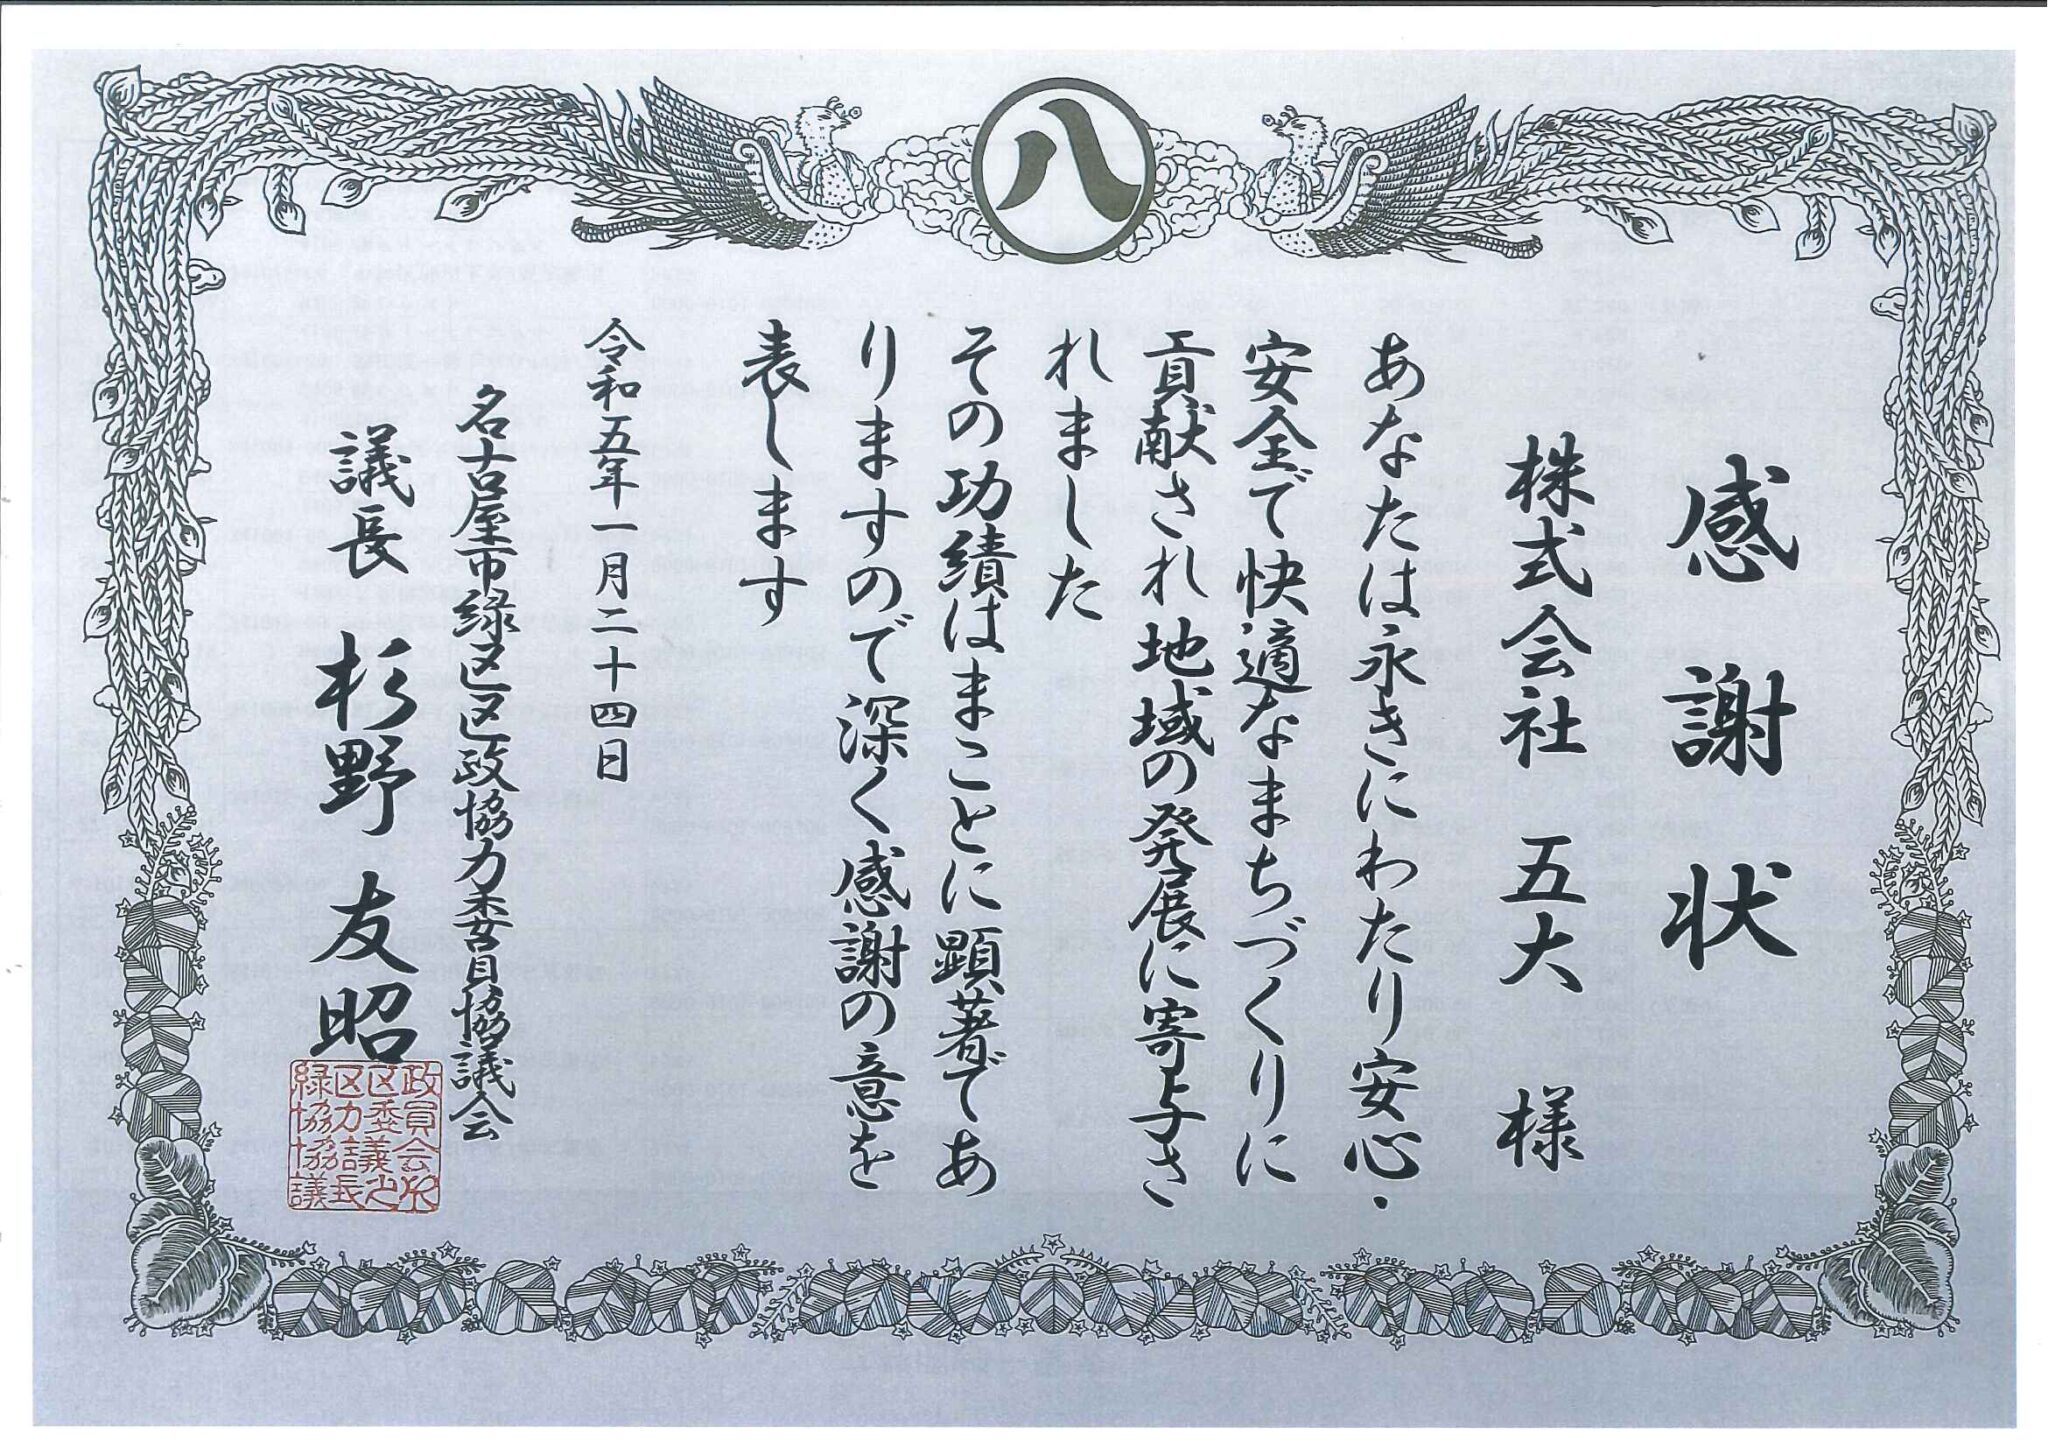 八
感謝状
株式会社 五大 様
あなたは永きにわたり安心・
安全で快適なまちづくりに
貢献され地域の発展に寄与さ
れました
その功績はまことに顕著であ
りますので深く感謝の意を
表します
令和五年一月二十四日
名古屋市緑区区政協力委員協議会
議長 杉野友昭
政員会印
区委議之
区力議長
緑協協議